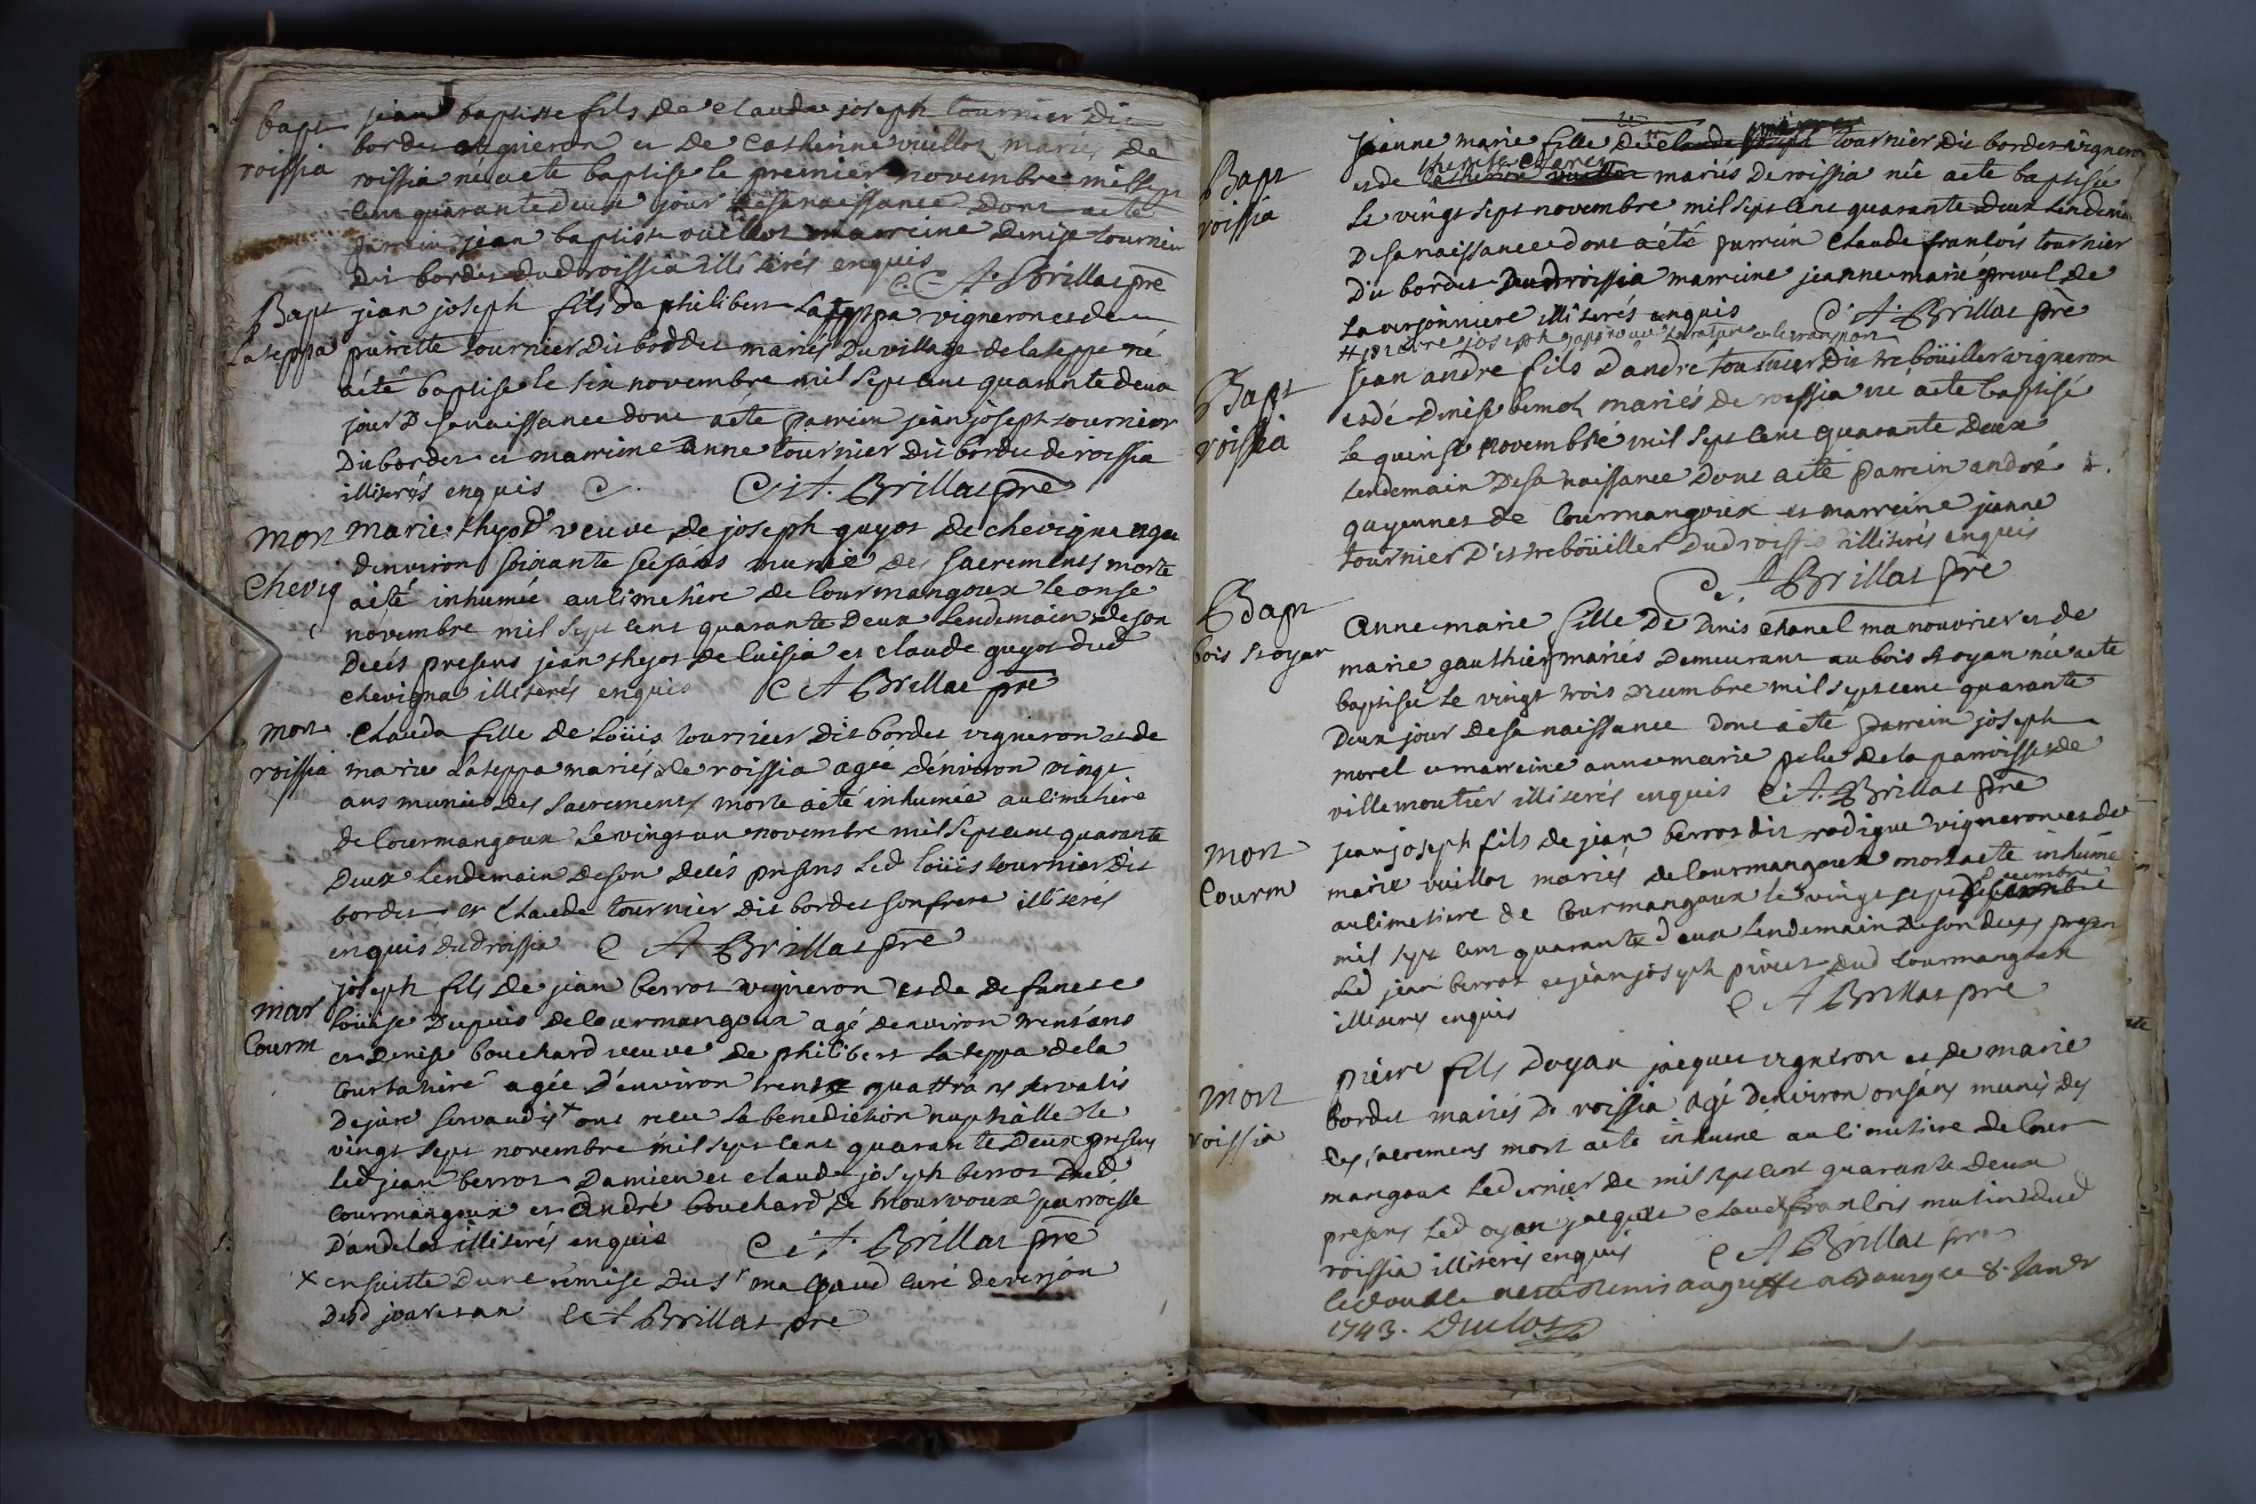 bapt
roissia
jean baptiste fils de claude joseph tournier dit
bordet vigneron et de Catherine vuillot mariés de
roissia né acte baptisé le premier novembre mil sept
cent quarante deux jour de sa naissance dont acte
parrein jean baptiste vuillot marreine denise tournier
dit bordet dud roissia illiterés enquis
C. A. Brillat pre
Bapt
lateppa
jean joseph fils de philibert lateppa vigneron et de
pierrette tournier dit boddet mariés du village de lateppe né
aété baptisé le six novembre mil sept cent quarante deux
jour de sa naissance dont acte parrein jean joseph tournier
dit bordet et marreine anne tournier dit bordet de roissia
illiterés enquis C. A. Brillat pre
mort
chevig
marie thyod veuve de joseph guyot de chevigna agée
d'environ soixante seise ans munie des sacrements morte
aété inhumée au cimetiere de Courmangoux le onse
novembre mil sept cent quarante deux lendemain de son
decés presens jean thyot de cuisia et claude guyot dud
chevigna illiterés enquis C A Brillat pre
mort
roissia
Clauda fille de loüis tournier dit bordet vigneron et de
marie lateppa mariés de roissia agée d'environ vingt
ans munie des sacrements morte aété inhumée au cimetiere
de Courmangoux le vingt un novembre mil sept cent quarante
deux lendemain de son decés presens led loüis tournier dit
bordet et Claude tournier dit bordet son frere illiterés
enquis dud roissia C A Brillat pre
mar
Courm
joseph fils de jean berrot vigneron et de defuncte
loüise dupuis de Courmangoux agé denviron trent'ans
et denise bouchard veuve de philibert lateppa dela
Courtatiere agée d'environ trente quattr'ans servatis
de jure servandis x ont receu la benediction nuptialle le
vingt sept novembre mil sept cent quarante deux presens
led jean berrot Damien et claude joseph berrot dud
Courmangoux et andré bouchard de mourvoux parroisse
D'andelot illiterés enquis C. A. Brillat pre
x ensuitte d'une remise du Sr curé de verjon
desd jour et an C A Brillat pre
Bapt
roissia
jeanne marie fille de claude tournier dit bordet vigneron
et de mariés de roissia née acte baptisée
le vingt sept novembre mil sept cent quarante deux lendemain
de sa naissance dont aété parrein Claude françois tournier
dit bordet dud roissia marreine jeanne marie prevel de
la verjonniere illiterés enquis C. A. Brillat pre
# pierre joseph approuvé la rature
Bapt
roissia
jean andre fils d'andré tournier dit treboüiller vigneron
et de denise bemol mariés de roissia né acte baptisé
le quinse novembre mil sept cent quarante deux
lendemain de sa naissance dont acte parrein andré
guyennet de Courmangoux et marreine jeanne
tournier dit treboüiller dud roissia illiterés enquis
C. A Brillat pre
Bapt
bois stoyan
anne marie fille de denis chanel manouvrier et de
marie gauthier mariés demeurant au bois stoyan née acte
baptisée le vingt trois decembre mil sept cent quarante
deux jour de sa naissance dont aété parrein joseph
morel et marreine anne marie de la parroisse de
villemoutier illiterés enquis C. A. Brillat pre
mort
Courm
jean joseph fils de jean berrot dit rodigue vigneron et de
marie vuillot mariés de Courmangoux mort aété inhumé
au cimetiere de Courmangoux le vingt sept decembre
mil sept cent quarante deux lendemain de son deces presen
led jean berrot et jean joseph pivet dud Courmangoux
illiterés enquis C A Brillat pre
mort
roissia
pierre fils d'oyan jacquet vigneron et de marie
bordet mariés de roissia agé d'environ ons'ans munis des
des sacremens mort aété inhumé au cimetiere de Cour
mangoux le dernier de mil sept cent quarante deux
presens led oyan jacquet claude françois mutin dud
roissia illiterés enquis C A Brillat pre
le double aesté remis au greffe a Bourg ce 8. janvr
1743. Duclos